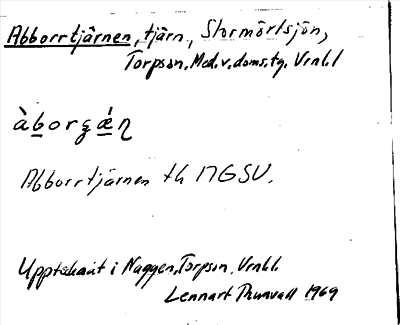 Abborrtjärnen, tjärn, Stormörtsjön,
Torpson. Med. v. doms. tg. Vrnl.l
àborʒǽn
Abborrtjärnen th NGSV.
i Naggen, Torpson. Vrnl.l.
Lennart Thunvall 1969